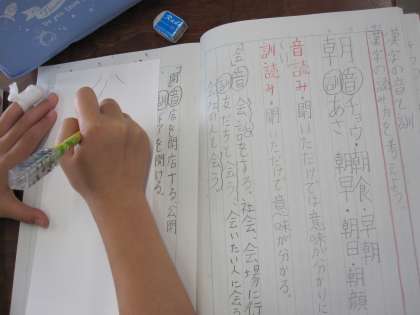 漢字の音と訓
漢字の読み方を考えよう。
朝 音 チョウ・朝食・早朝
訓 あさ 朝早・朝日・朝顔
音読み・聞いただけでは意味が分かりに
くい。
訓読み・聞いただけで意味が分かる。
会 音 会話をする。社会、会場に行
訓 友だちと会う。会いたい人に会う
会いたい人と会う。
開 音 店を開店する。公開
訓 ドアを開ける。